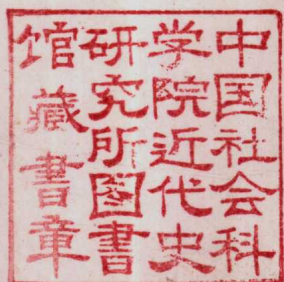 中国社会科
学院近代史
研究所圖書
馆藏書章